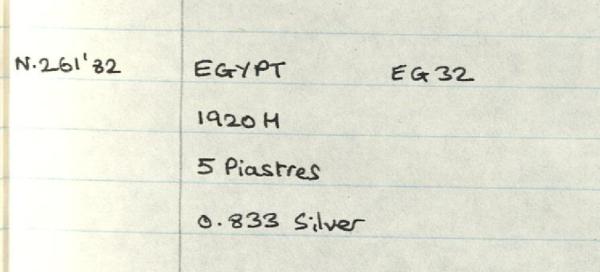 N.261'82 EGYPT EG32
1920 H
5 Piastres
0.833 Silver